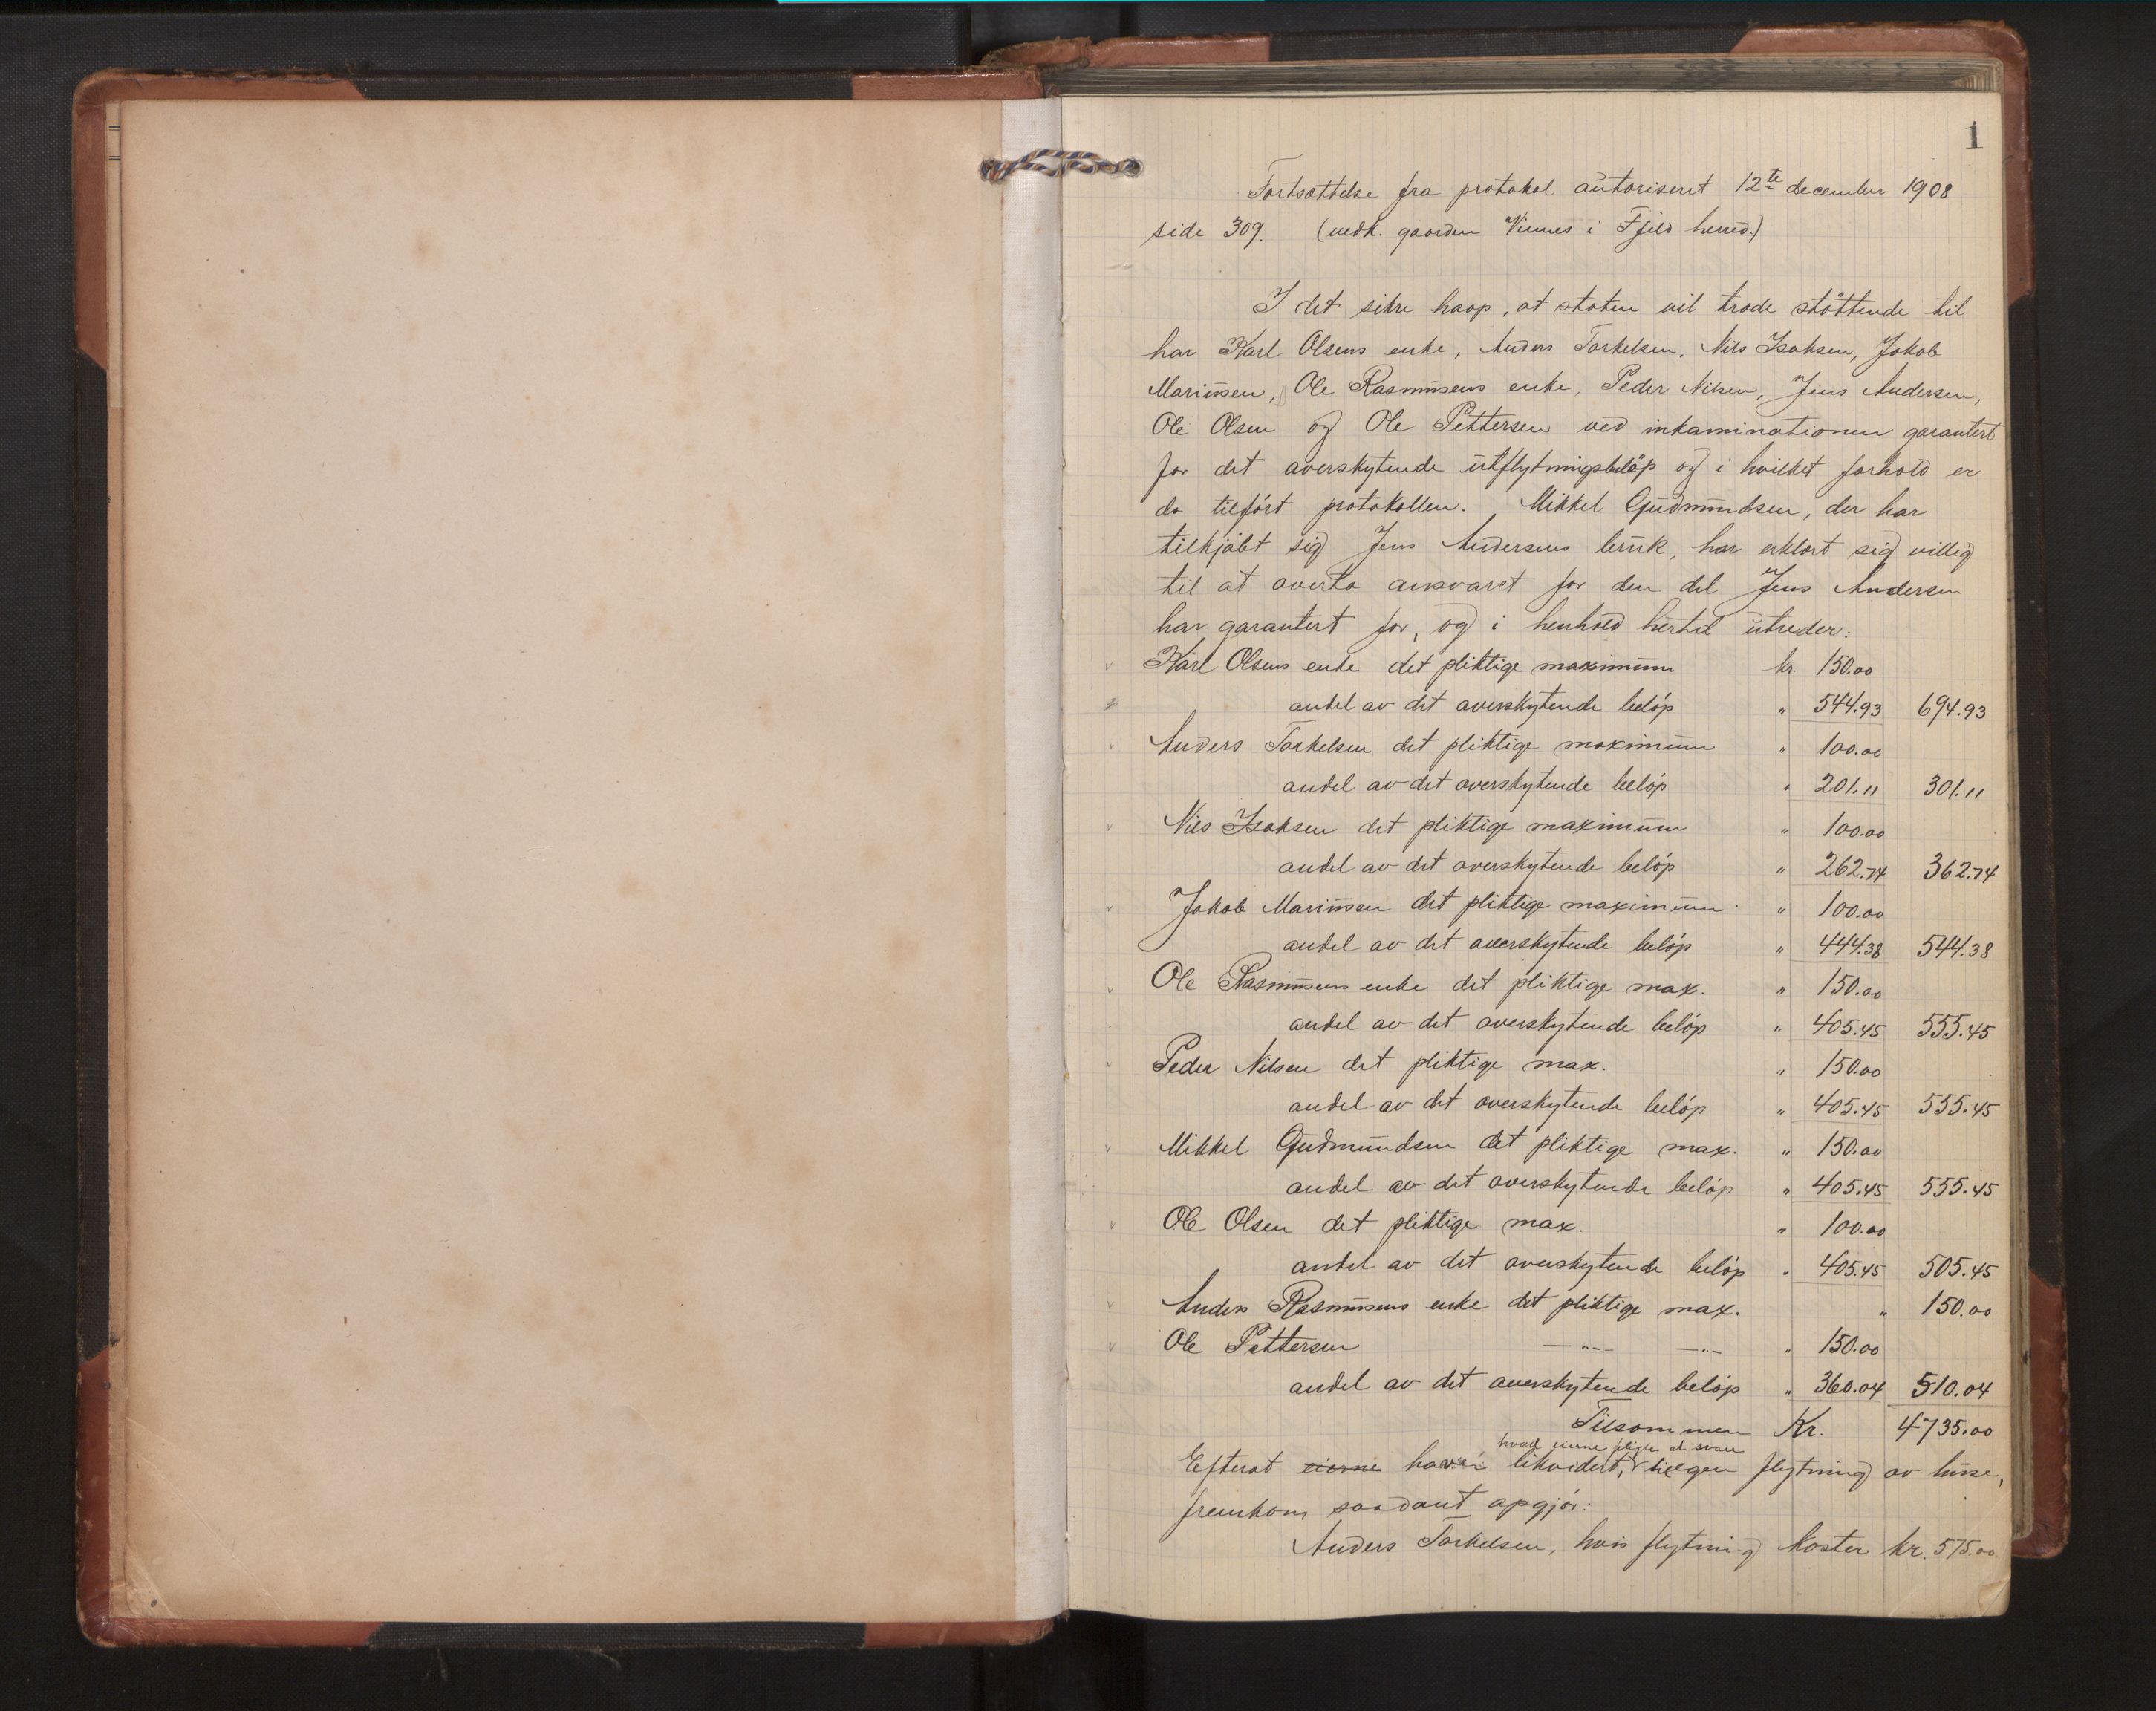 1
Fortsættelse fra protokol autoriseret 12te december 1908
side 309. (vedk. gaarden Vinnes i Fjeld herred.)
I det sikre haap, at staten vil træde støttende til
har Karl Olsens enke, Anders Torkelsen, Nils Isaksen, Jakob
Mariusen, Ole Rasmusens enke, Peder Nilsen, Jens Andersen,
Ole Olsen og Ole Pettersen ved inkaminationen garantert
for det overskytende utflytningsbeløp og i hvilket forhold er
da tilført protokollen. Mikkel Gudmundsen, der har
tilkjøbt sig Jens Andersens bruk, har erklært sig villig
til at overta ansvaret for den del Jens Andersen
har garantert for, og i henhold hertil utreder:
Karl Olsens enke det pliktige maximum kr. 150.00
andel av det overskytende beløp " 544.93 694.93
Anders Torkelsen det pliktige maximum " 100.00
andel av det overskytende beløp " 201.11 301.11
Nils Isaksen det pliktige maximum " 100.00
andel av det overskytende beløp " 262.74 362.74
Jakob Mariusen det pliktige maximum " 100.00
andel av det overskytende beløp " 444.38 544.38
Ole Rasmusens enke det pliktige max. " 150.00
andel av det overskytende beløp " 405.45 555.45
Peder Nilsen det pliktige max. " 150.00
andel av det overskytende beløp " 405.45 555.45
Mikkel Gudmundsen det pliktige max. " 150.00
andel av det overskytende beløp " 405.45 555.45
Ole Olsen det pliktige max. " 100.00
andel av det overskytende beløp " 405.45 505.45
Anders Rasmusens enke det pliktige max. " 150.00
Ole Pettersen —"— —"— " 150.00
andel av det overskytende beløp " 360.04 510.04
Tilsammen Kr. 4735.00
hvad eierne pligter at svare
Efterat eierne haver likvidert, flytning av huse,
fremkom saadant opgjør:
Anders Torkelsen, hvis flytning koster kr. 575.00